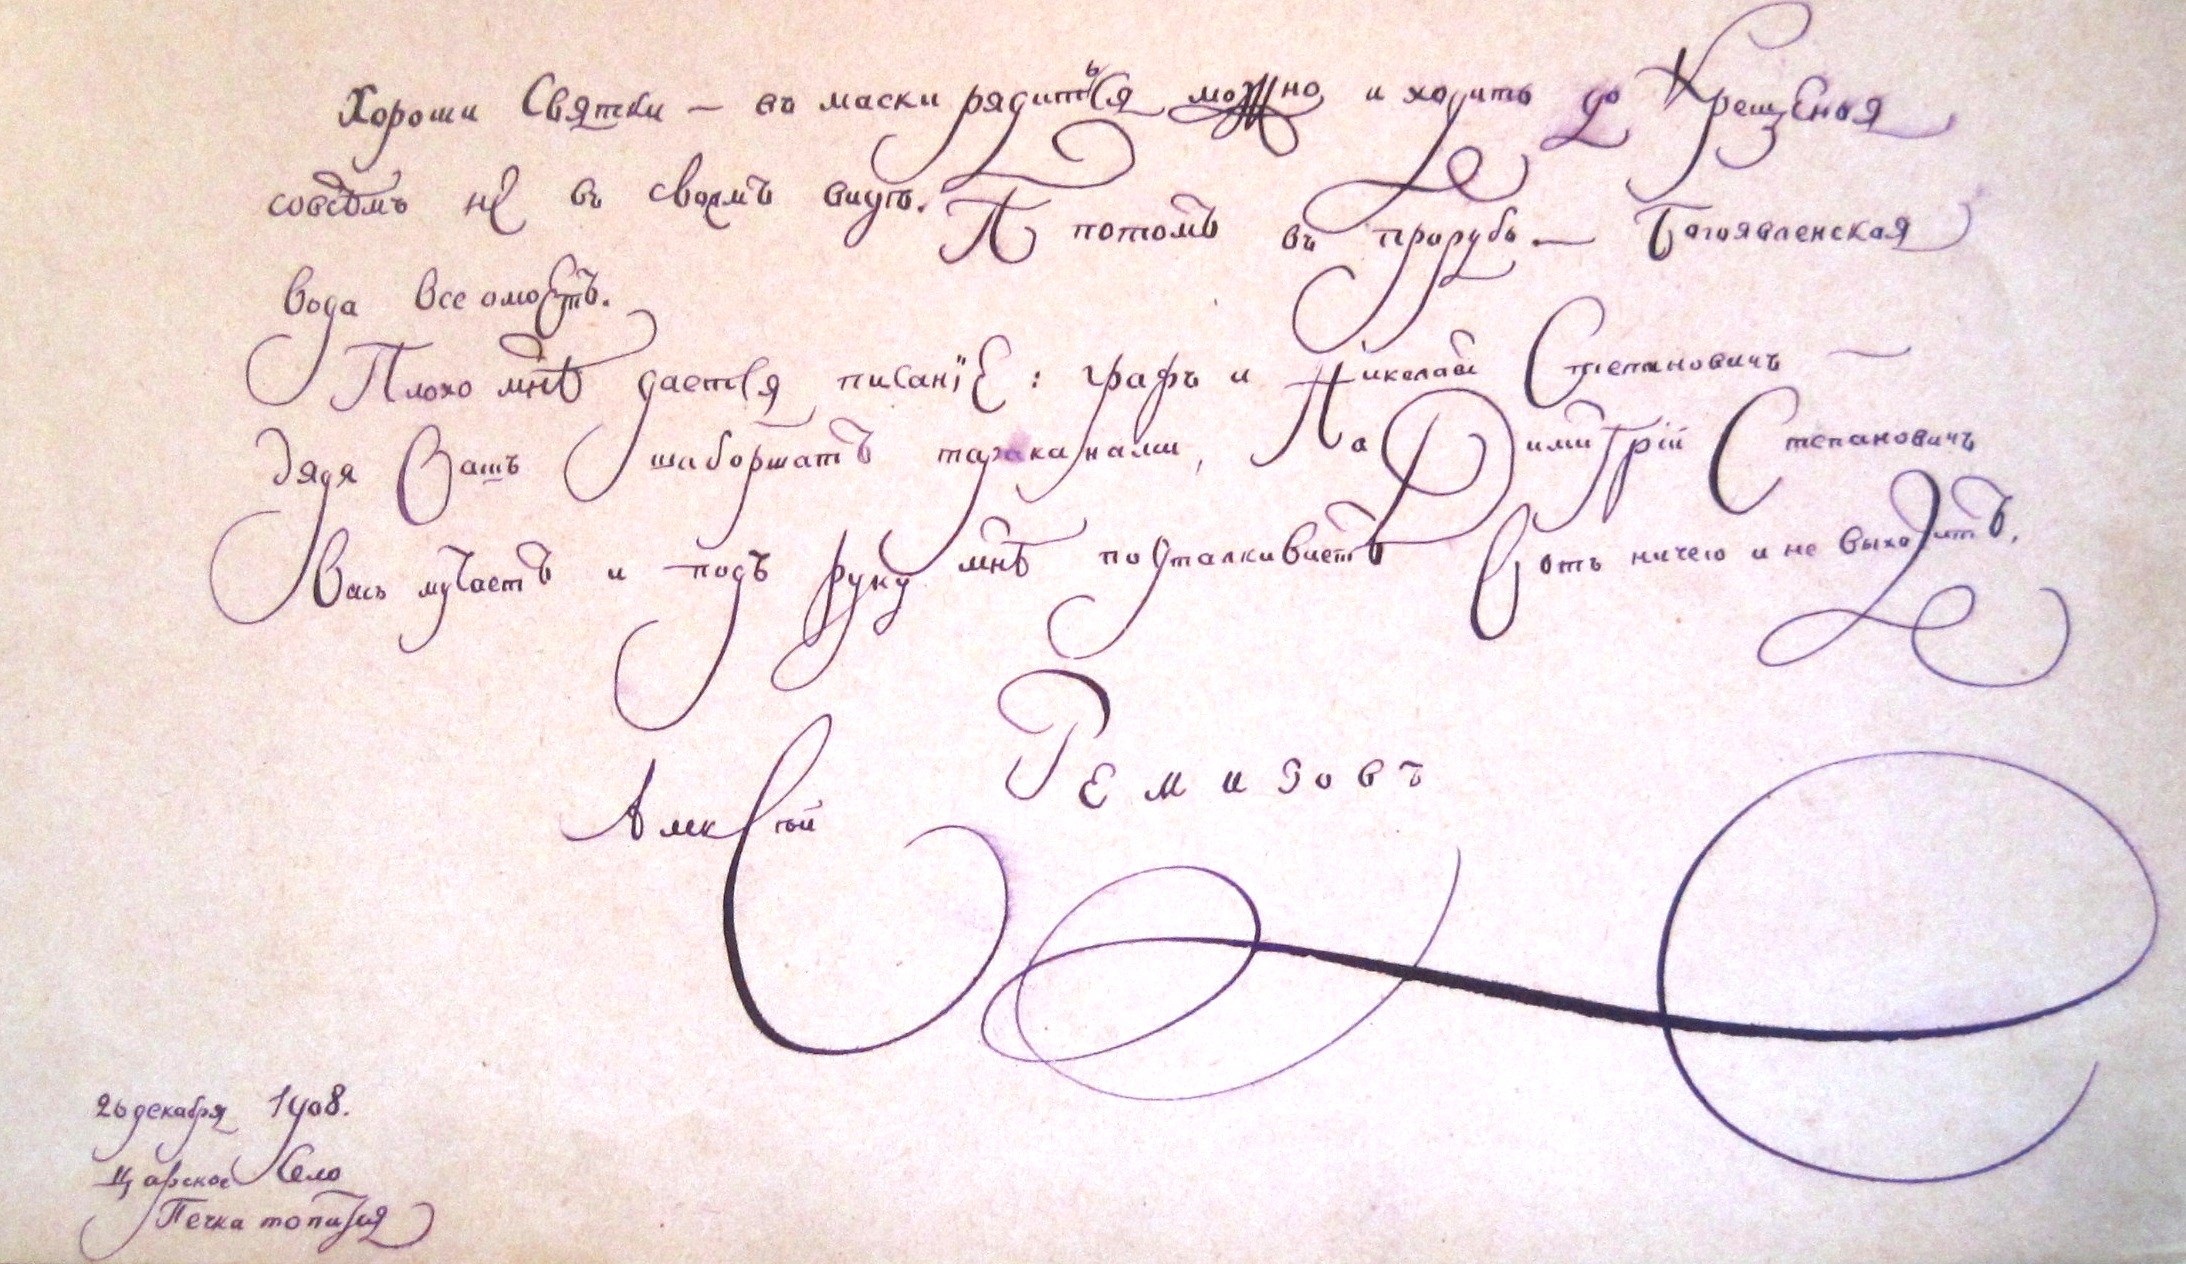 Хороши Святки — въ маски рядиться можно и ходить до Крещенья
совсѣмъ не въ своемъ видѣ. А потомъ въ прорубь — Богоявленская
вода все омоетъ.
Плохо мнѣ дается писанiе: графъ и Николай Степановичъ —
дядя Вашъ шаборшатъ тараканами, На Димитрiй Степановичъ
Васъ мучаетъ и подъ руку мнѣ подталкиваетъ Вотъ ничего и не выходитъ.
Алексѣй Ремизовъ
26 декабря 1908.
Царское Село
Печка топится